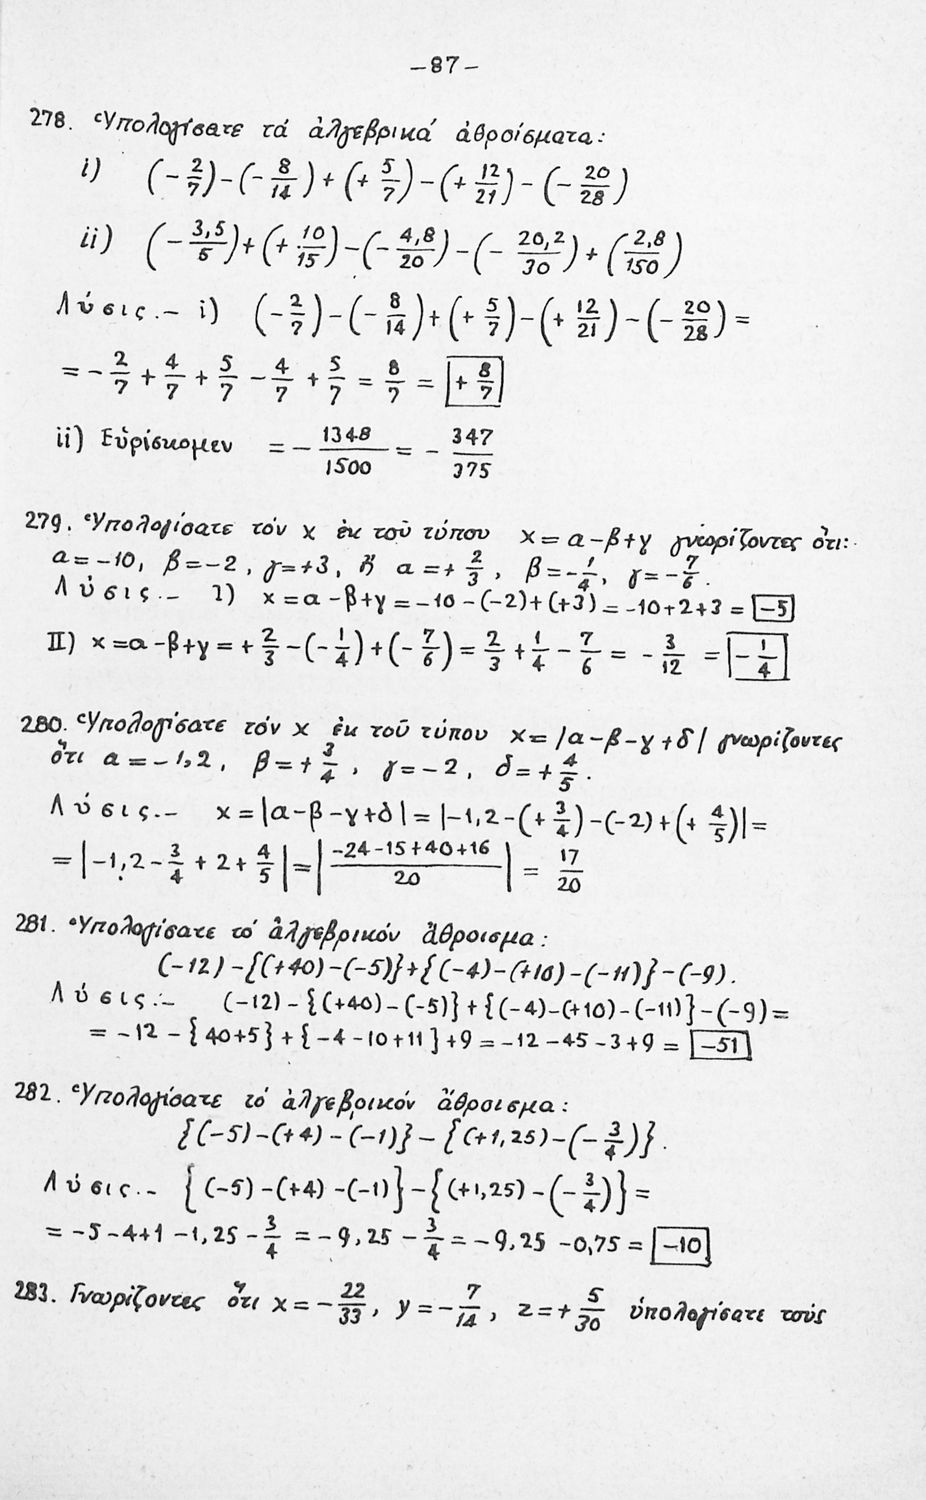 -87-
278. Ὑπολογίσατε τά ἀλγεβρικά ἀθροίσματα:
i) (-2/7)-(-8/14)+(+5/7)-(+12/21)-(-20/28)
ii) (-3,5/5)+(+10/15)-(-4,8/20)-(-20,2/30)+(2,8/150)
Λύσις.- i) (-2/7)-(-8/14)+(+5/7)-(+12/21)-(-20/28)=
=-2/7+4/7+5/7-4/7+5/7=8/7=+8/7
ii) Εὑρίσκομεν =-1348/1500=-347/375
279. Ὑπολογίσατε τόν x ἐκ τοῦ τύπου x=α-β+γ γνωρίζοντες ὅτι:
α=-10, β=-2, γ=+3, ἤ α=+2/3, β=-1/4, γ=-7/6.
Λύσις.- 1) x=α-β+γ=-10-(-2)+(+3)=-10+2+3=-5
II) x=α-β+γ=+2/3-(-1/4)+(-7/6)=2/3+1/4-7/6=-3/12=-1/4
280. Ὑπολογίσατε τόν x ἐκ τοῦ τύπου x=/α-β-γ+δ/ γνωρίζοντες
ὅτι α=-1,2, β=+3/4, γ=-2, δ=+4/5.
Λύσις.- x=|α-β-γ+δ|=|-1,2-(+3/4)-(-2)+(+4/5)|=
=|-1,2-3/4+2+4/5|=|-24-15+40+16/20|=17/20
281. Ὑπολογίσατε τό ἀλγεβρικόν ἄθροισμα:
(-12)-{(+40)-(-5)}+{(-4)-(+10)-(-11)}-(-9).
Λύσις.- (-12)-{(+40)-(-5)}+{(-4)-(+10)-(-11)}-(-9)=
=-12-{40+5}+{-4-10+11}+9=-12-45-3+9=-51
282. Ὑπολογίσατε τό ἀλγεβρικόν ἄθροισμα:
{(-5)-(+4)-(-1)}-{(+1,25)-(-3/4)}.
Λύσις.- {(-5)-(+4)-(-1)}-{(+1,25)-(-3/4)}=
=-5-4+1-1,25-3/4=-9,25-3/4=-9,25-0,75=-10
283. Γνωρίζοντες ὅτι x=-22/33, y=-7/14, z=+5/30 ὑπολογίσατε τούς